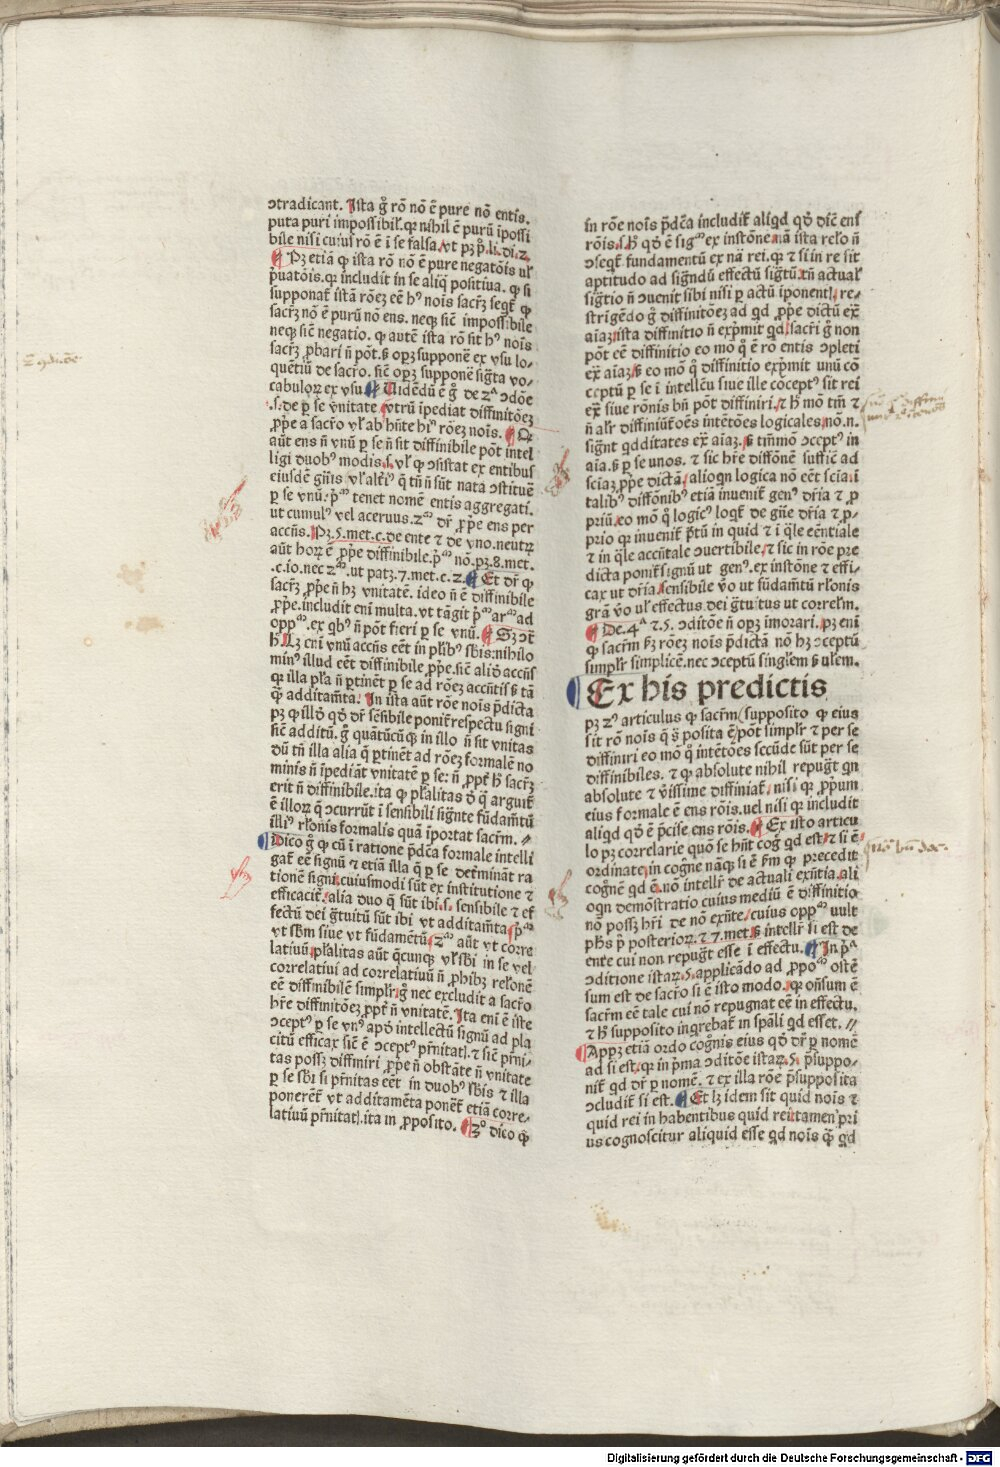 ↄtradicant. Ista g̃ rō nō ē pure nō entis.
puta puri impossibił. qꝛ nihil ē purū ipossi
bile nisi cuiuſ rō ē ī se falsa. vt pꝫ p̊. li. di. 2.
Pꝫ etiā ꝙ ista rō nō ē pure negatōis uł
p̃uatōis. qꝛ includit in se aliq̄ positiua. ꝙ si
supponat̃ istā rōeꝫ eē hꝰ nois sacr̄ꝫ seqt̃ ꝙ
sacr̄ꝫ nō ē purū nō ens. neqꝫ sic̄ impossibile
neqꝫ sic̄ negatio. ꝙ autē ista rō sit hꝰ nois
sacr̄ꝫ ꝓbari ñ pōt. ß opꝫ supponē ex vsu lo-
quētiū de sacr̄o. sic̄ opꝫ supponē sigr̃ta vo-
cabuloꝝ ex vsu. Uidēdū ē g̃ de 2ᵃ ↄdōe
.s. de p se vnitate vtrū ipediat diffinitōeꝫ
ꝓpe a sacr̄o vł ab hn̄te hꝰ rōeꝫ nois. Q
aūt ens ñ vnū p se ñ sit diffinibile pōt intel
ligi duobꝰ modis. s. vł ꝙ ↄsistat ex entibus
eiusdē gn̄is vł altiꝰ q̄ tn̄ ñ sūt nata ↄstituē
p se vnū. p̊ᵐ tenet nomē entis aggregati.
ut cumulꝰ vel aceruus. 2ᵐ dr̄ ꝓpe ens per
accn̄s. Pꝫ. 5. met. c. de ente ⁊ de vno. neutꝝ
aūt hoꝝ ē ꝓpe diffinibile. p̊ᵐ nō. pꝫ. 8. met.
.c. io. nec 2ᵐ. ut patꝫ. 7. met. c. 2. Et dr̄ ꝙ
sacr̄ꝫ ꝓpe ñ hꝫ vnitatē. ideo ñ ē diffinibile
ꝓpe. includit eni multa. vt tāgit p̊ᵐ arᵐ ad
oppᵐ. ex qbꝰ ñ pōt fieri p se vnū. Sꝫ ↄt̃
h̃. Lꝫ eni vnū accn̄s eēt in pl̃ibꝰ sbis: nihilo
minꝰ illud eēt diffinibile ꝓpe. sic̄ aliqd̾ accn̄s
qꝛ illa pl̃a ñ ꝑtinēt p se ad rōeꝫ accn̄tis ß tā
q̄ additam̄ta. In ista aūt rōe nois p̄dicta
pꝫ ꝙ illd̾ qd̾ dr̄ sēsibile ponit̃ respectu signi
sic̄ additū. g̃ quātūcūqꝫ in illo ñ sit vnitas
dū tn̄ illa alia q̄ ꝑtinēt ad rōeꝫ formalē no
minis ñ ipediāt vnitatē p se: ñ ꝓpt̃ h̃ sacr̄ꝫ
erit ñ diffinibile. ita ꝙ pl̃alitas d̾ q̄ arguit̃
ē illoꝝ q̄ ↄcurrūt ī sensibili sigñte fūdam̄tū
illiꝰ rl̃onis formalis quā iportat sacr̄m. //
Dico g̃ ꝙ cū ī ratione p̄dc̄a formale intelli
gat̃ eē signū ⁊ etiā illa q̄ p se det̃mināt ra
tionē signi. cuiusmodi sūt ex institutione ⁊
efficacit̃. alia duo q̄ sūt ibi. s. sensibile ⁊ ef
fectū dei g̃tuitū sūt ibi vt additam̄ta p̊ᵐ
vt sbm siue vt fūdamētū 2ᵐ aūt vt corre
latiuū. pl̃alitas aūt q̄cunqꝫ vł sbi in se vel
correlatiui ad correlatiuū ñ ꝓhibꝫ relonē
eē diffinibilē simplr̄. g̃ nec excludit a sacr̄o
hr̄e diffinitōeꝫ ꝓpt̃ ñ vnitatē. Ita eni ē iste
ↄceptꝰ p se vnꝰ apd̾ intellectū signū ad pla
citū efficax sic̄ ē ↄceptꝰ pr̄nitatꝭ. ⁊ sic̄ pr̄ni-
tas possꝫ diffiniri ꝓpe ñ obstāte ñ vnitate
p se sbi si pr̄nitas eēt in duobꝰ sbis ⁊ illa
ponerēt̃ vt additamēta ponēt̃ etiā corre-
latiuū pr̄nitatꝭ. ita in ꝓposito. 3° dico ꝙ
in rōe nois p̄dc̄a includit̃ aliqd qd̾ dic̄ enſ
rōis. s. h̃ qd̾ ē sigᵐ ex instōne. nā ista relo ñ
ↄseqt̃ fundamentū ex nā rei. qꝛ ⁊ si in re sit
aptitudo ad sigñdū effectū sigr̃tū. tñ actual̕
sigr̃tio ñ ↄuenit sibi nisi p actū iponentꝭ. re-
strigēdo g̃ diffinitōeꝫ ad qd ꝓpe dictū ex̃
aiaꝫ ista diffinitio ñ exp̄mit qd sacr̄i g̃ non
pōt eē diffinitio eo mo q̊ ē ro entis ↄpleti
ex̃ aiaꝫ ß eo mo q̊ diffinitio exp̄mit unū cō
ceptū p se ī intellc̄u siue ille cōceptꝰ sit rei
ex̃ siue rōnis bñ pōt diffiniri. ⁊ h̃ mō tm̄ ⁊
ñ alr̄ diffiniūt̃ oēs intētōes logicales. nō. n.
sigñt qdditates ex̃ aiaꝫ. ß tm̄mō ↄceptꝰ in
aia. ß p se unos. ⁊ sic hr̄e diffōnē suffic̄ ad
sciaꝫ ꝓpe dictā. alioqn logica nō eēt scia. i
talibꝰ diffōnibꝰ etiā inuenit̃ genꝰ dr̄ia ⁊ ꝓ
priū. eo mō q̊ logicꝰ loqt̃ de gñe dr̄ia ⁊ ꝓ-
prio qꝛ inuenit̃ p̄tū in quid ⁊ i q̄le eēntiale
⁊ in q̄le accn̄tale ↄuertibile. ⁊ sic in rōe pre
dicta ponit̃ signū ut genꝰ. ex instōne ⁊ effi-
cax ut dr̄ia. sensibile v̾o ut fūdam̄tū rl̃onis
grā v̾o uł effectus dei g̃tuitus ut correlm̄.
De. 4ᵃ ⁊. 5. ↄditōe ñ opꝫ imorari. pꝫ eni
ꝙ sacr̄m ßꝫ rōeꝫ nois p̄dictā nō hꝫ ↄceptū
simplr̄ simplicē. nec ↄceptū singl̃em ß ul̃em.
Ex his predictis
pꝫ 2ꝰ articulus ꝙ sacr̄m / supposito ꝙ eius
sit rō nois q̄ sꝫ posita ē / pōt simplr̄ ⁊ per se
diffiniri eo mo q̊ intētōes secūde sūt per se
diffinibiles. ⁊ ꝙ absolute nihil repugt̃ qn
absolute ⁊ v̾issime diffiniat̃. nisi qꝛ ꝓprium
eius formale ē ens rōis. uel nisi qꝛ includit
aliqd qd̾ ē p̄cise ens rōis. Ex isto articu
lo pꝫ correlarie quō se hn̄t cog̃ qd est. ⁊ si ē
ordinate. in cogñe nāqꝫ si ē ßm ꝙ precedit
cogñē qd ē. nō intellr̄ de actuali exn̄tia. ali
oqn demōstratio cuius mediū ē diffinitio
nō possꝫ hr̄i de nō exn̄te. cuius oppᵐ uult
phs p̊ posterioꝝ. ⁊ 7. met. ß intellr̄ si est de
ente cui non repugt̃ esse ī effectu. In p̊ᵃ
ↄditione istaꝝ. 5. applicādo ad ꝓpoᵐ ostē
sum est de sacr̄o si ē isto modo. qꝛ oñsum ē
sacr̄m eē tale cui nō repugnat eē in effectu.
⁊ h̃ supposito ingrehat̃ in spāli qd esset. //
Appꝫ etiā ordo cogñis eius qd̾ dr̄ p nomē
ad si est. qꝛ in p̊ma ↄditōe istaꝝ. 5. p̄suppo-
nit̃ qd dr̄ p nomē. ⁊ ex illa rōe p̄supposita
ↄcludit̃ si est. Et lꝫ idem sit quid nois ⁊
quid rei in habentibus quid rei: tamen pri
us cognoscitur aliquid esse qd nois q̄ qd
Digitalisierung gefördert durch die Deutsche Forschungsgemeinschaft - DFG